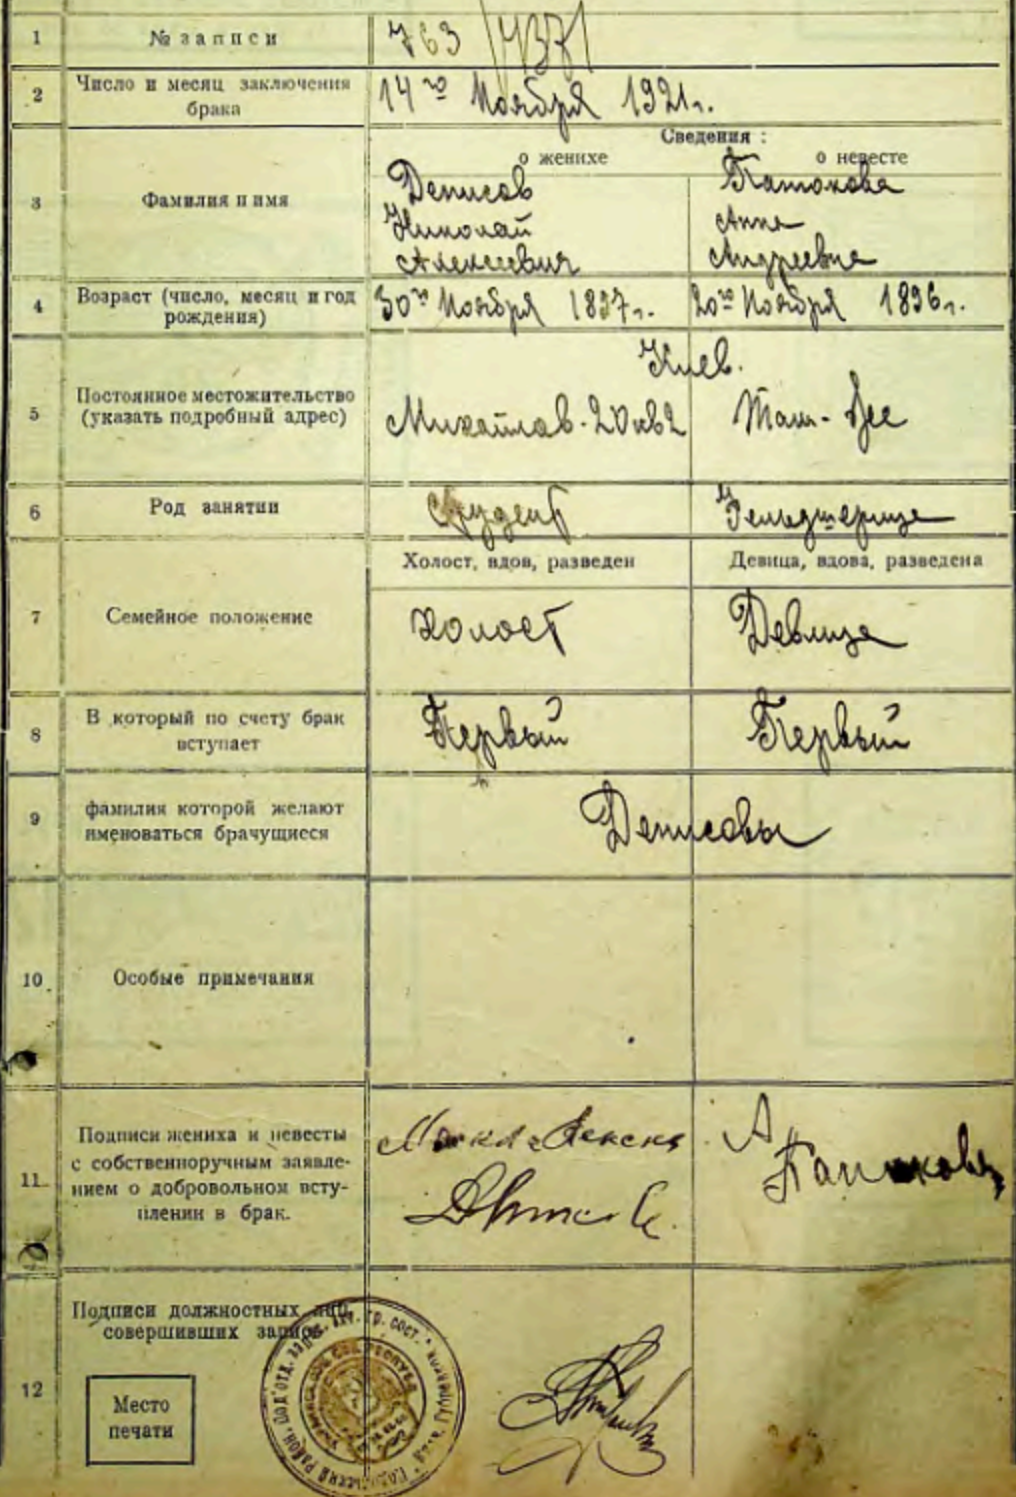 1 № записи 763 /4371
2 Число и месяц заключения брака 14го Ноября 1921 г.
Сведения :
о женихе о невесте
3 Фамилия и имя
Денисов
Николай
Алексеевич
Анна
Андреевна
4 Возраст (число, месяц и год рождения) 30го Ноября 1897 г. 20го Ноября 1896 г.
Киев.
5 Постоянное местожительство (указать подробный адрес) Михайлов. 20 кв 2 Там-же
6 Род занятии Студент Фельдшерица
Холост, вдов, разведен Девица, вдова, разведена
7 Семейное положение Холост Девица
8 В который по счету брак вступает Первый Первый
9 фамилия которой желают именоваться брачущиеся Денисовы
10 Особые примечания
11 Подписи жениха и невесты
с собственноручным заявле-
нием о добровольном всту-
плении в брак.
А
12 Подписи должностных лиц,
совершивших запись.
Место
печати